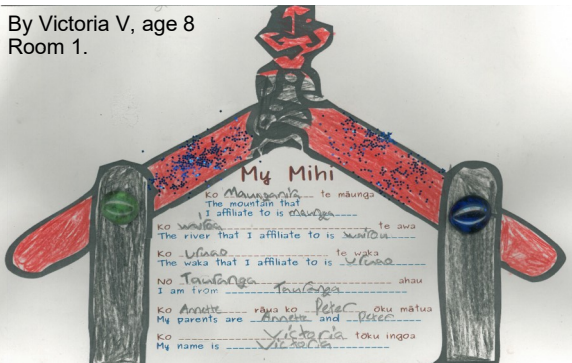 By Victoria V, age 8
Room 1.
My Mihi
Ko te māunga
The mountain that
I affiliate to is
Ko wairoa te awa
The river that I affiliate to is wairoa
Ko te waka
The waka that I affiliate to is
No Tauranga ahau
I am from Tauranga
Ko Annette rāua ko Peter ōku mātua
My parents are Annette and Peter
Ko Victoria tōku ingoa
My name is Victoria